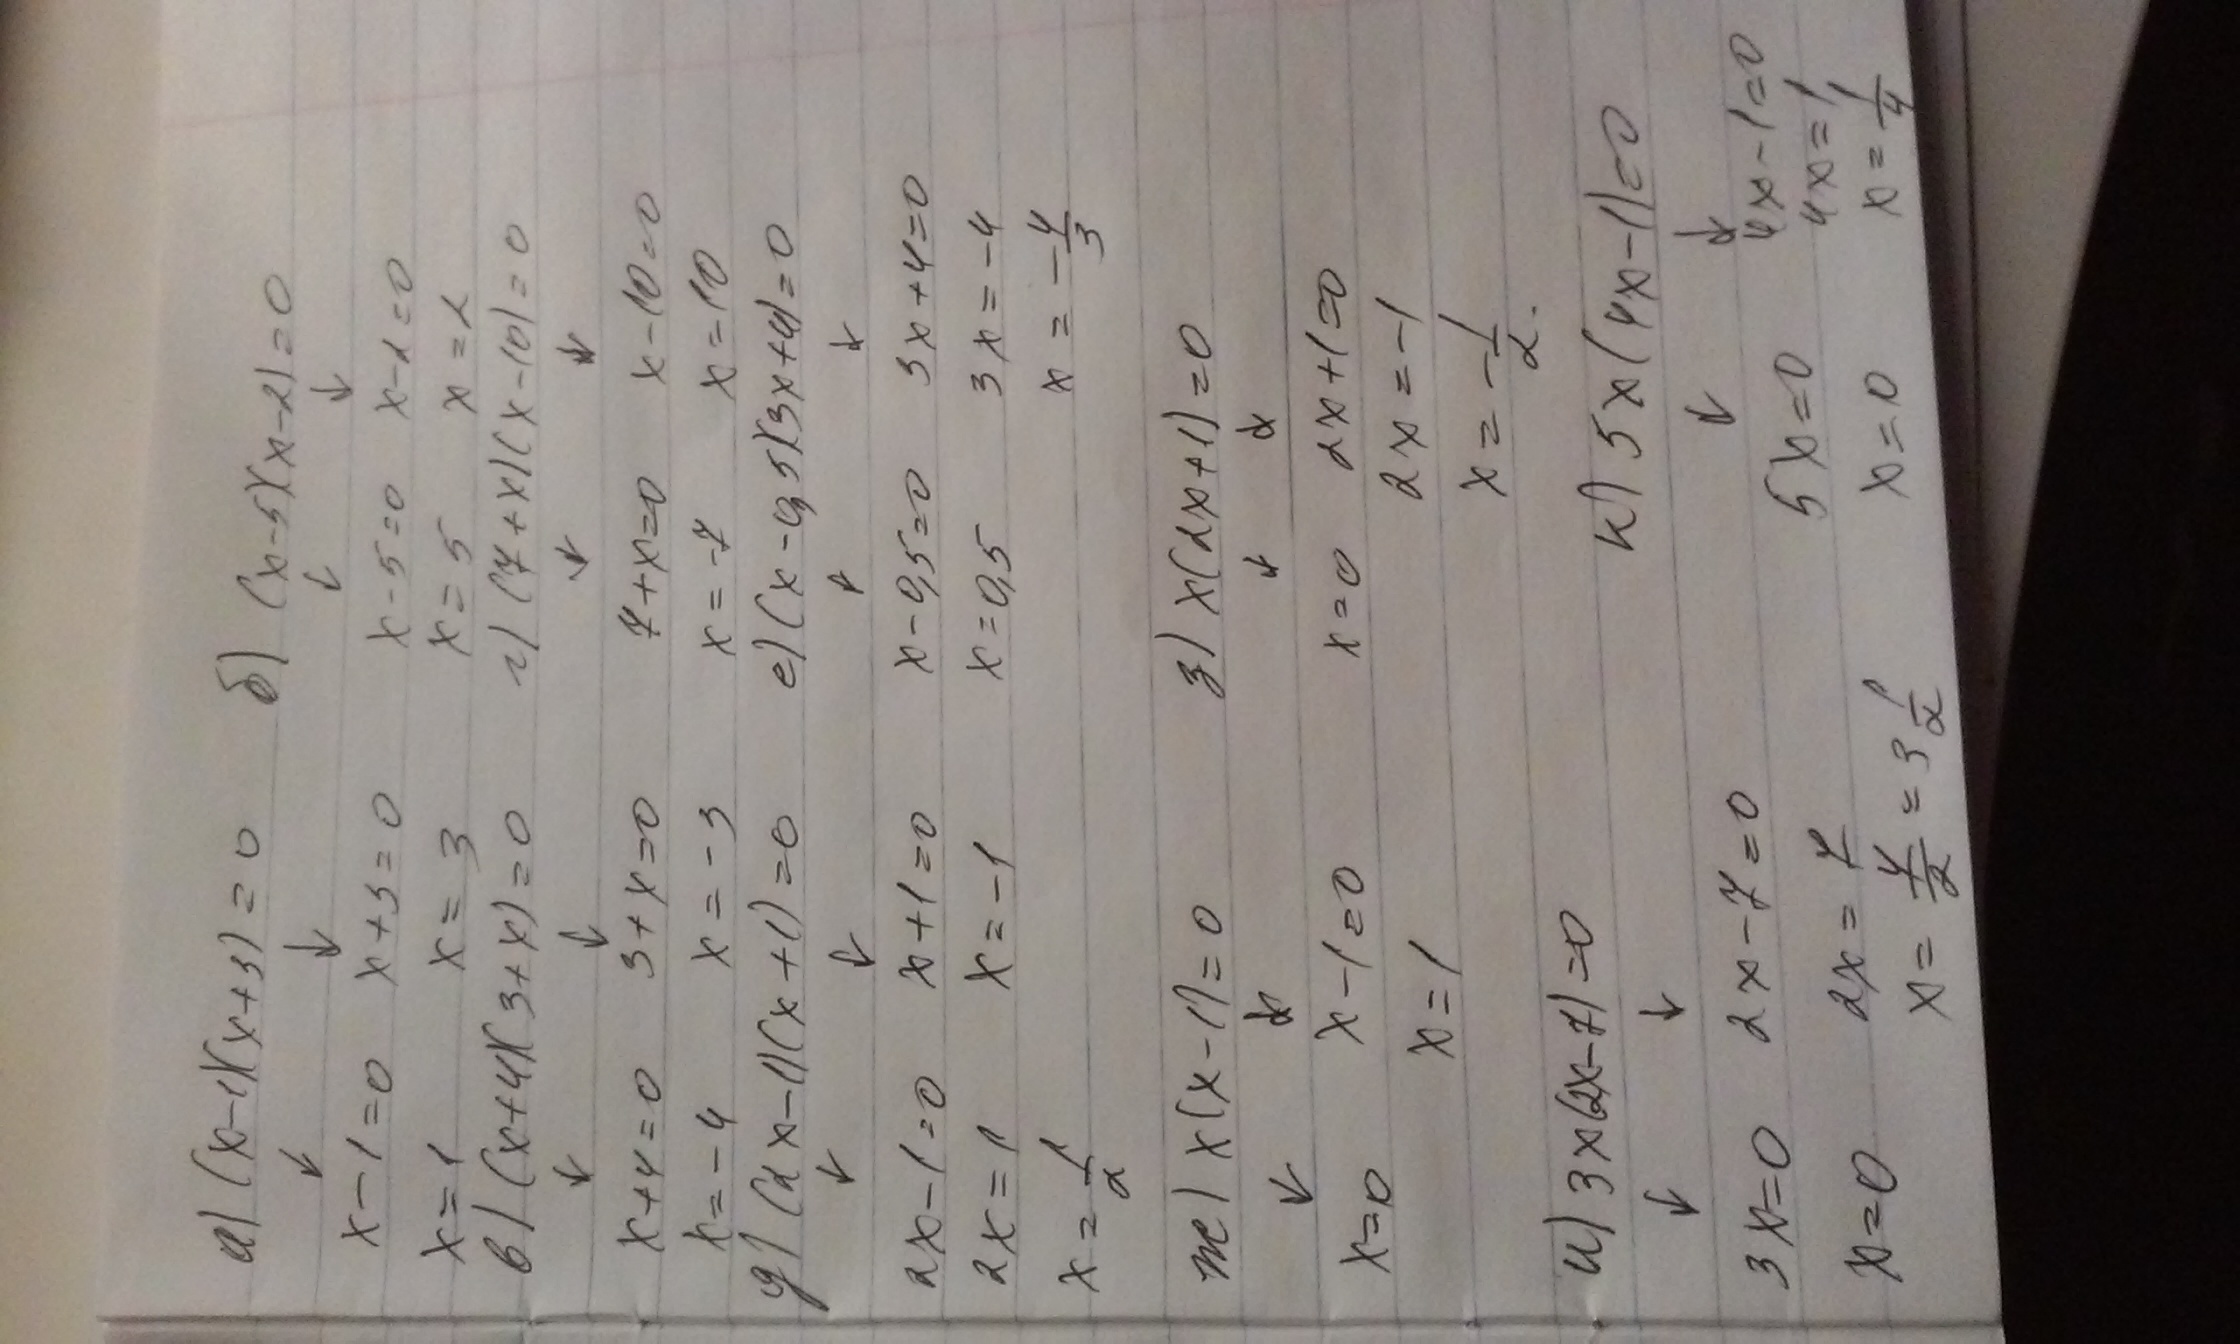 а) (x-1)(x+3)=0 б) (x-5)(x-2)=0
↓ ↓ ↓ ↓
x-1=0 x+3=0 x-5=0 x-2=0
x=1 x=3 x=5 x=2
в) (x+4)(3+x)=0 г) (7+x)(x-10)=0
↓ ↓ ↓ ↓
x+4=0 3+x=0 7+x=0 x-10=0
x=-4 x=-3 x=-7 x=10
д) (2x-1)(x+1)=0 е) (x-0,5)(3x+4)=0
↓ ↓ ↓ ↓
2x-1=0 x+1=0 x-0,5=0 3x+4=0
2x=1 x=-1 x=0,5 3x=-4
x=1/2 x=-4/3
ж) x(x-1)=0 з) x(2x+1)=0
↓ ↓ ↓ ↓
x=0 x-1=0 x=0 2x+1=0
x=1 2x=-1
x=-1/2.
и) 3x(2x-7)=0 к) 5x(4x-1)=0
↓ ↓ ↓ ↓
3x=0 2x-7=0 5x=0 4x-1=0
x=0 2x=7 x=0 4x=1
x=7/2=3 1/2 x=1/4